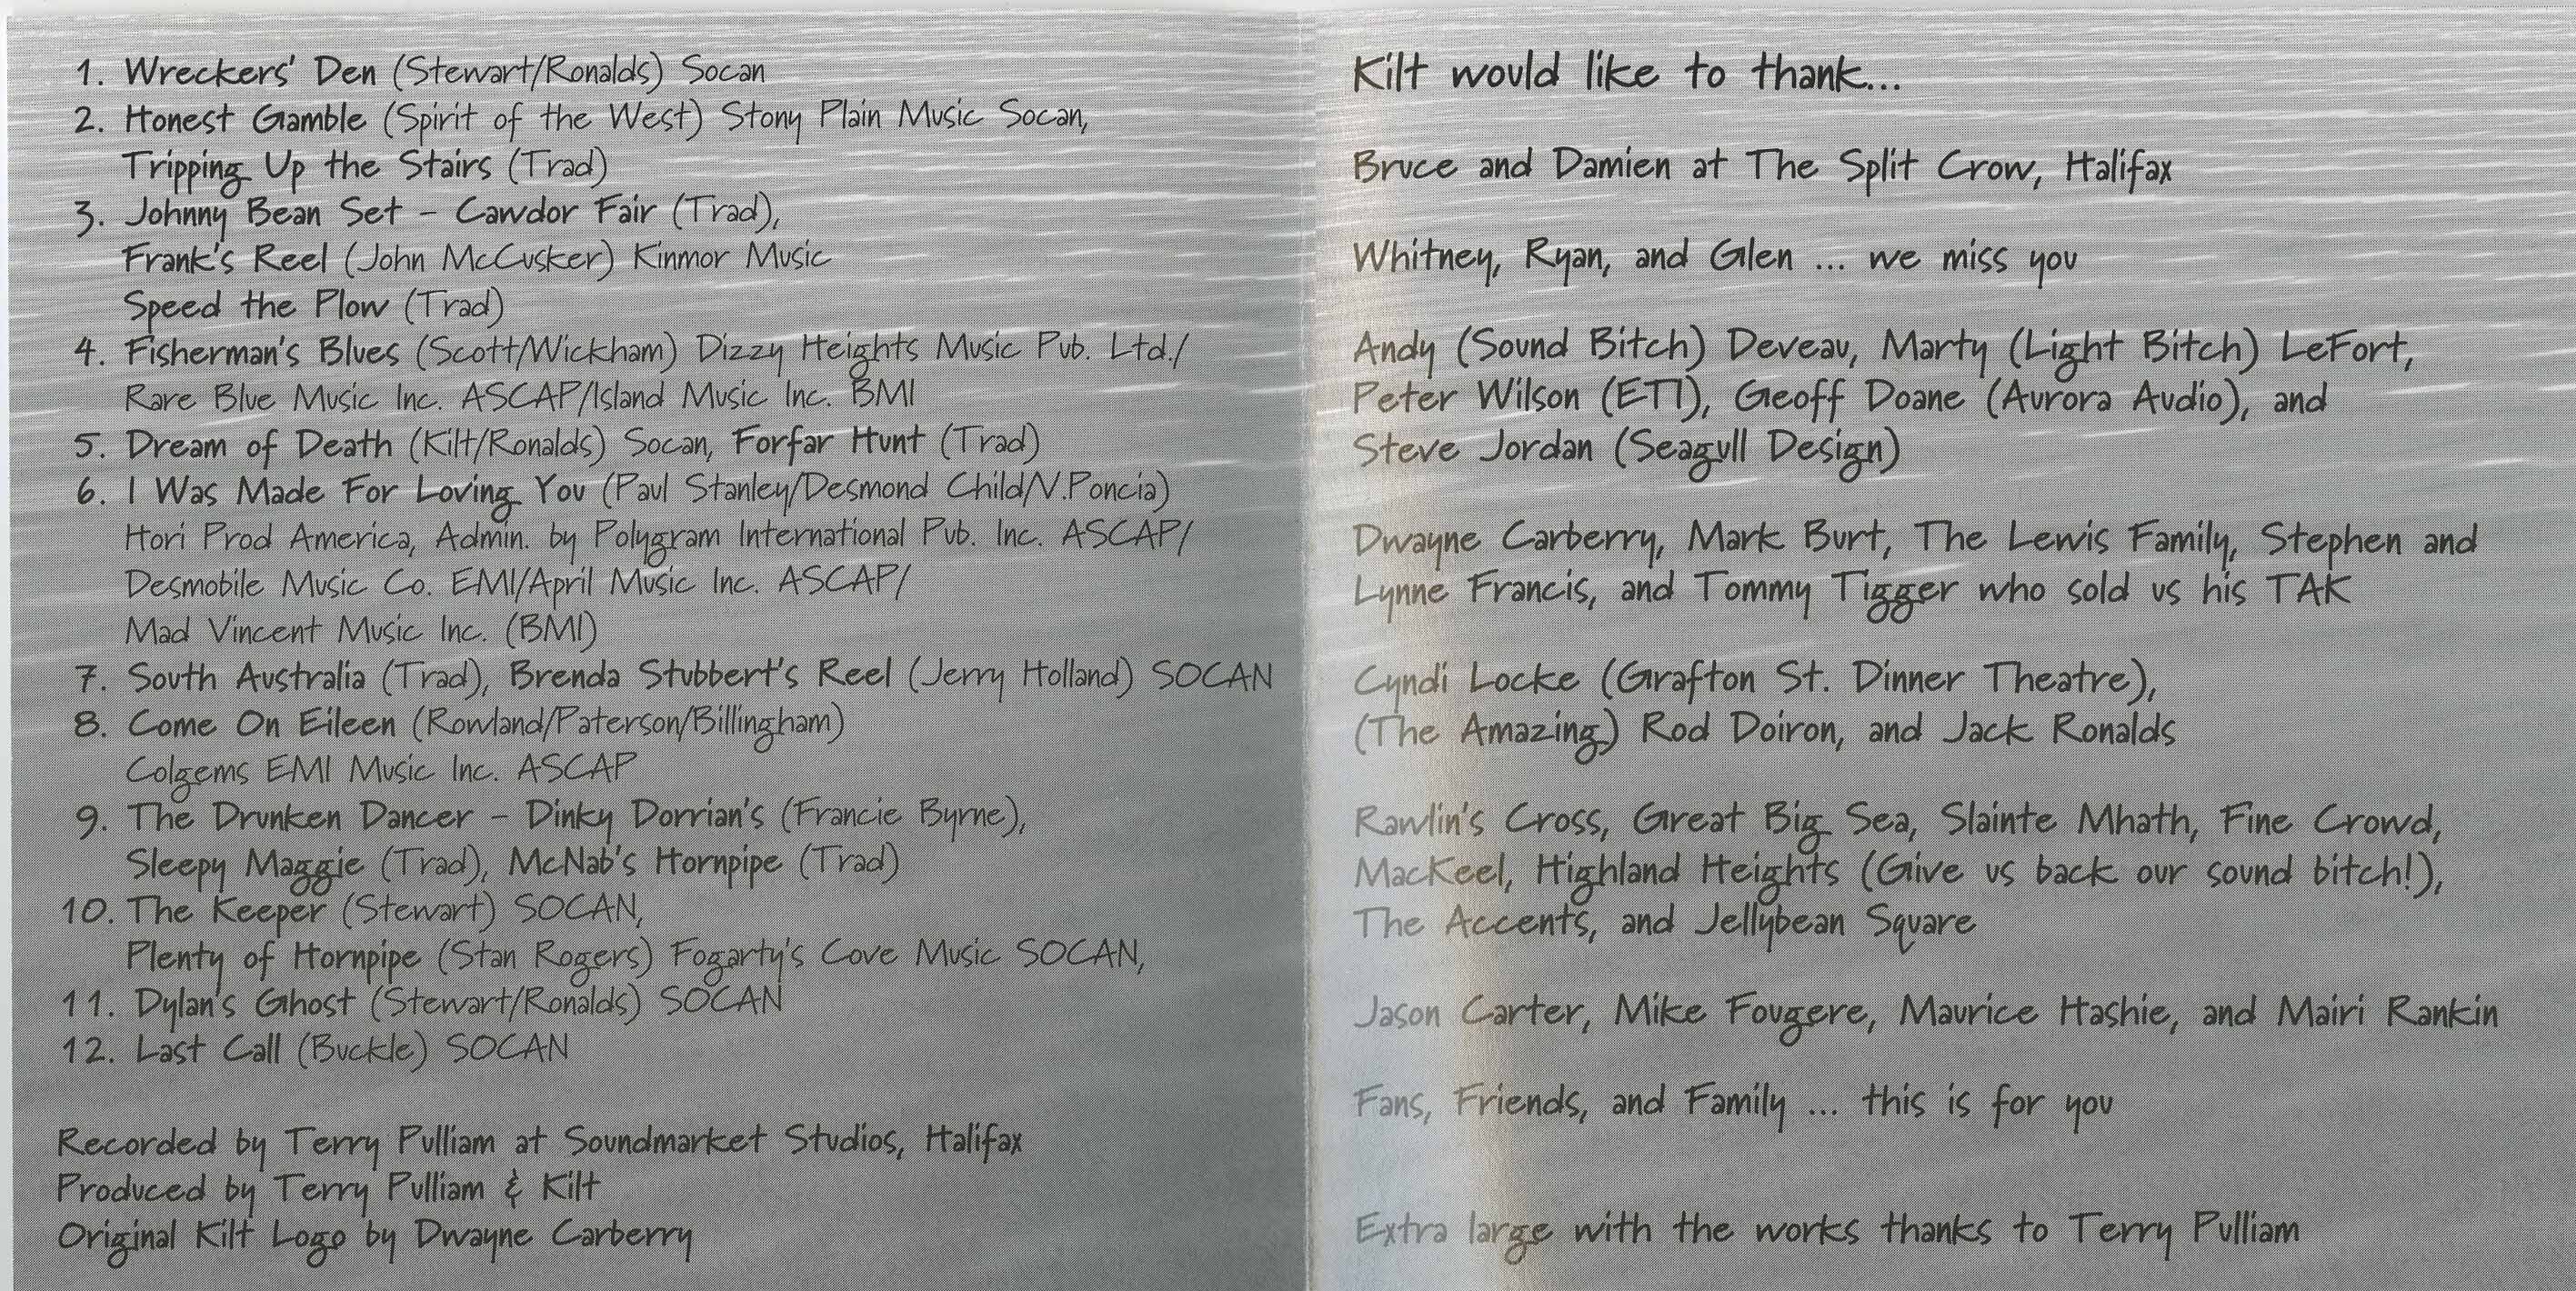 1. Wreckers' Den (Stewart/Ronalds) Socan
2. Honest Gamble (Spirit of the West) Stony Plain Music Socan,
Tripping Up the Stairs (Trad)
3. Johnny Bean Set - Cawdor Fair (Trad),
Frank's Reel (John McCusker) Kinmor Music
Speed the Plow (Trad)
4. Fisherman's Blues (Scott/Wickham) Dizzy Heights Music Pub. Ltd./
Rare Blue Music Inc. ASCAP/Island Music Inc. BMI
5. Dream of Death (Kilt/Ronalds) Socan, Forfar Hunt (Trad)
6. I Was Made For Loving You (Paul Stanley/Desmond Child/V.Poncia)
Hori Prod America, Admin. by Polygram International Pub. Inc. ASCAP/
Desmobile Music Co. EMI/April Music Inc. ASCAP/
Mad Vincent Music Inc. (BMI)
7. South Australia (Trad), Brenda Stubbert's Reel (Jerry Holland) SOCAN
8. Come On Eileen (Rowland/Paterson/Billingham)
Colgems EMI Music Inc. ASCAP
9. The Drunken Dancer - Dinky Dorrian's (Francie Byrne),
Sleepy Maggie (Trad), McNab's Hornpipe (Trad)
10. The Keeper (Stewart) SOCAN,
Plenty of Hornpipe (Stan Rogers) Fogarty's Cove Music SOCAN,
11. Dylan's Ghost (Stewart/Ronalds) SOCAN
12. Last Call (Buckle) SOCAN
Recorded by Terry Pulliam at Soundmarket Studios, Halifax
Produced by Terry Pulliam & Kilt
Original Kilt Logo by Dwayne Carberry
Kilt would like to thank...
Bruce and Damien at The Split Crow, Halifax
Whitney, Ryan, and Glen ... we miss you
Andy (Sound Bitch) Deveau, Marty (Light Bitch) LeFort,
Peter Wilson (ETI), Geoff Doane (Aurora Audio), and
Steve Jordan (Seagull Design)
Dwayne Carberry, Mark Burt, The Lewis Family, Stephen and
Lynne Francis, and Tommy Tigger who sold us his TAK
Cyndi Locke (Grafton St. Dinner Theatre),
(The Amazing) Rod Doiron, and Jack Ronalds
Rawlin's Cross, Great Big Sea, Slainte Mhath, Fine Crowd,
MacKeel, Highland Heights (Give us back our sound bitch!),
The Accents, and Jellybean Square
Jason Carter, Mike Fougere, Maurice Hashie, and Mairi Rankin
Fans, Friends, and Family ... this is for you
Extra large with the works thanks to Terry Pulliam